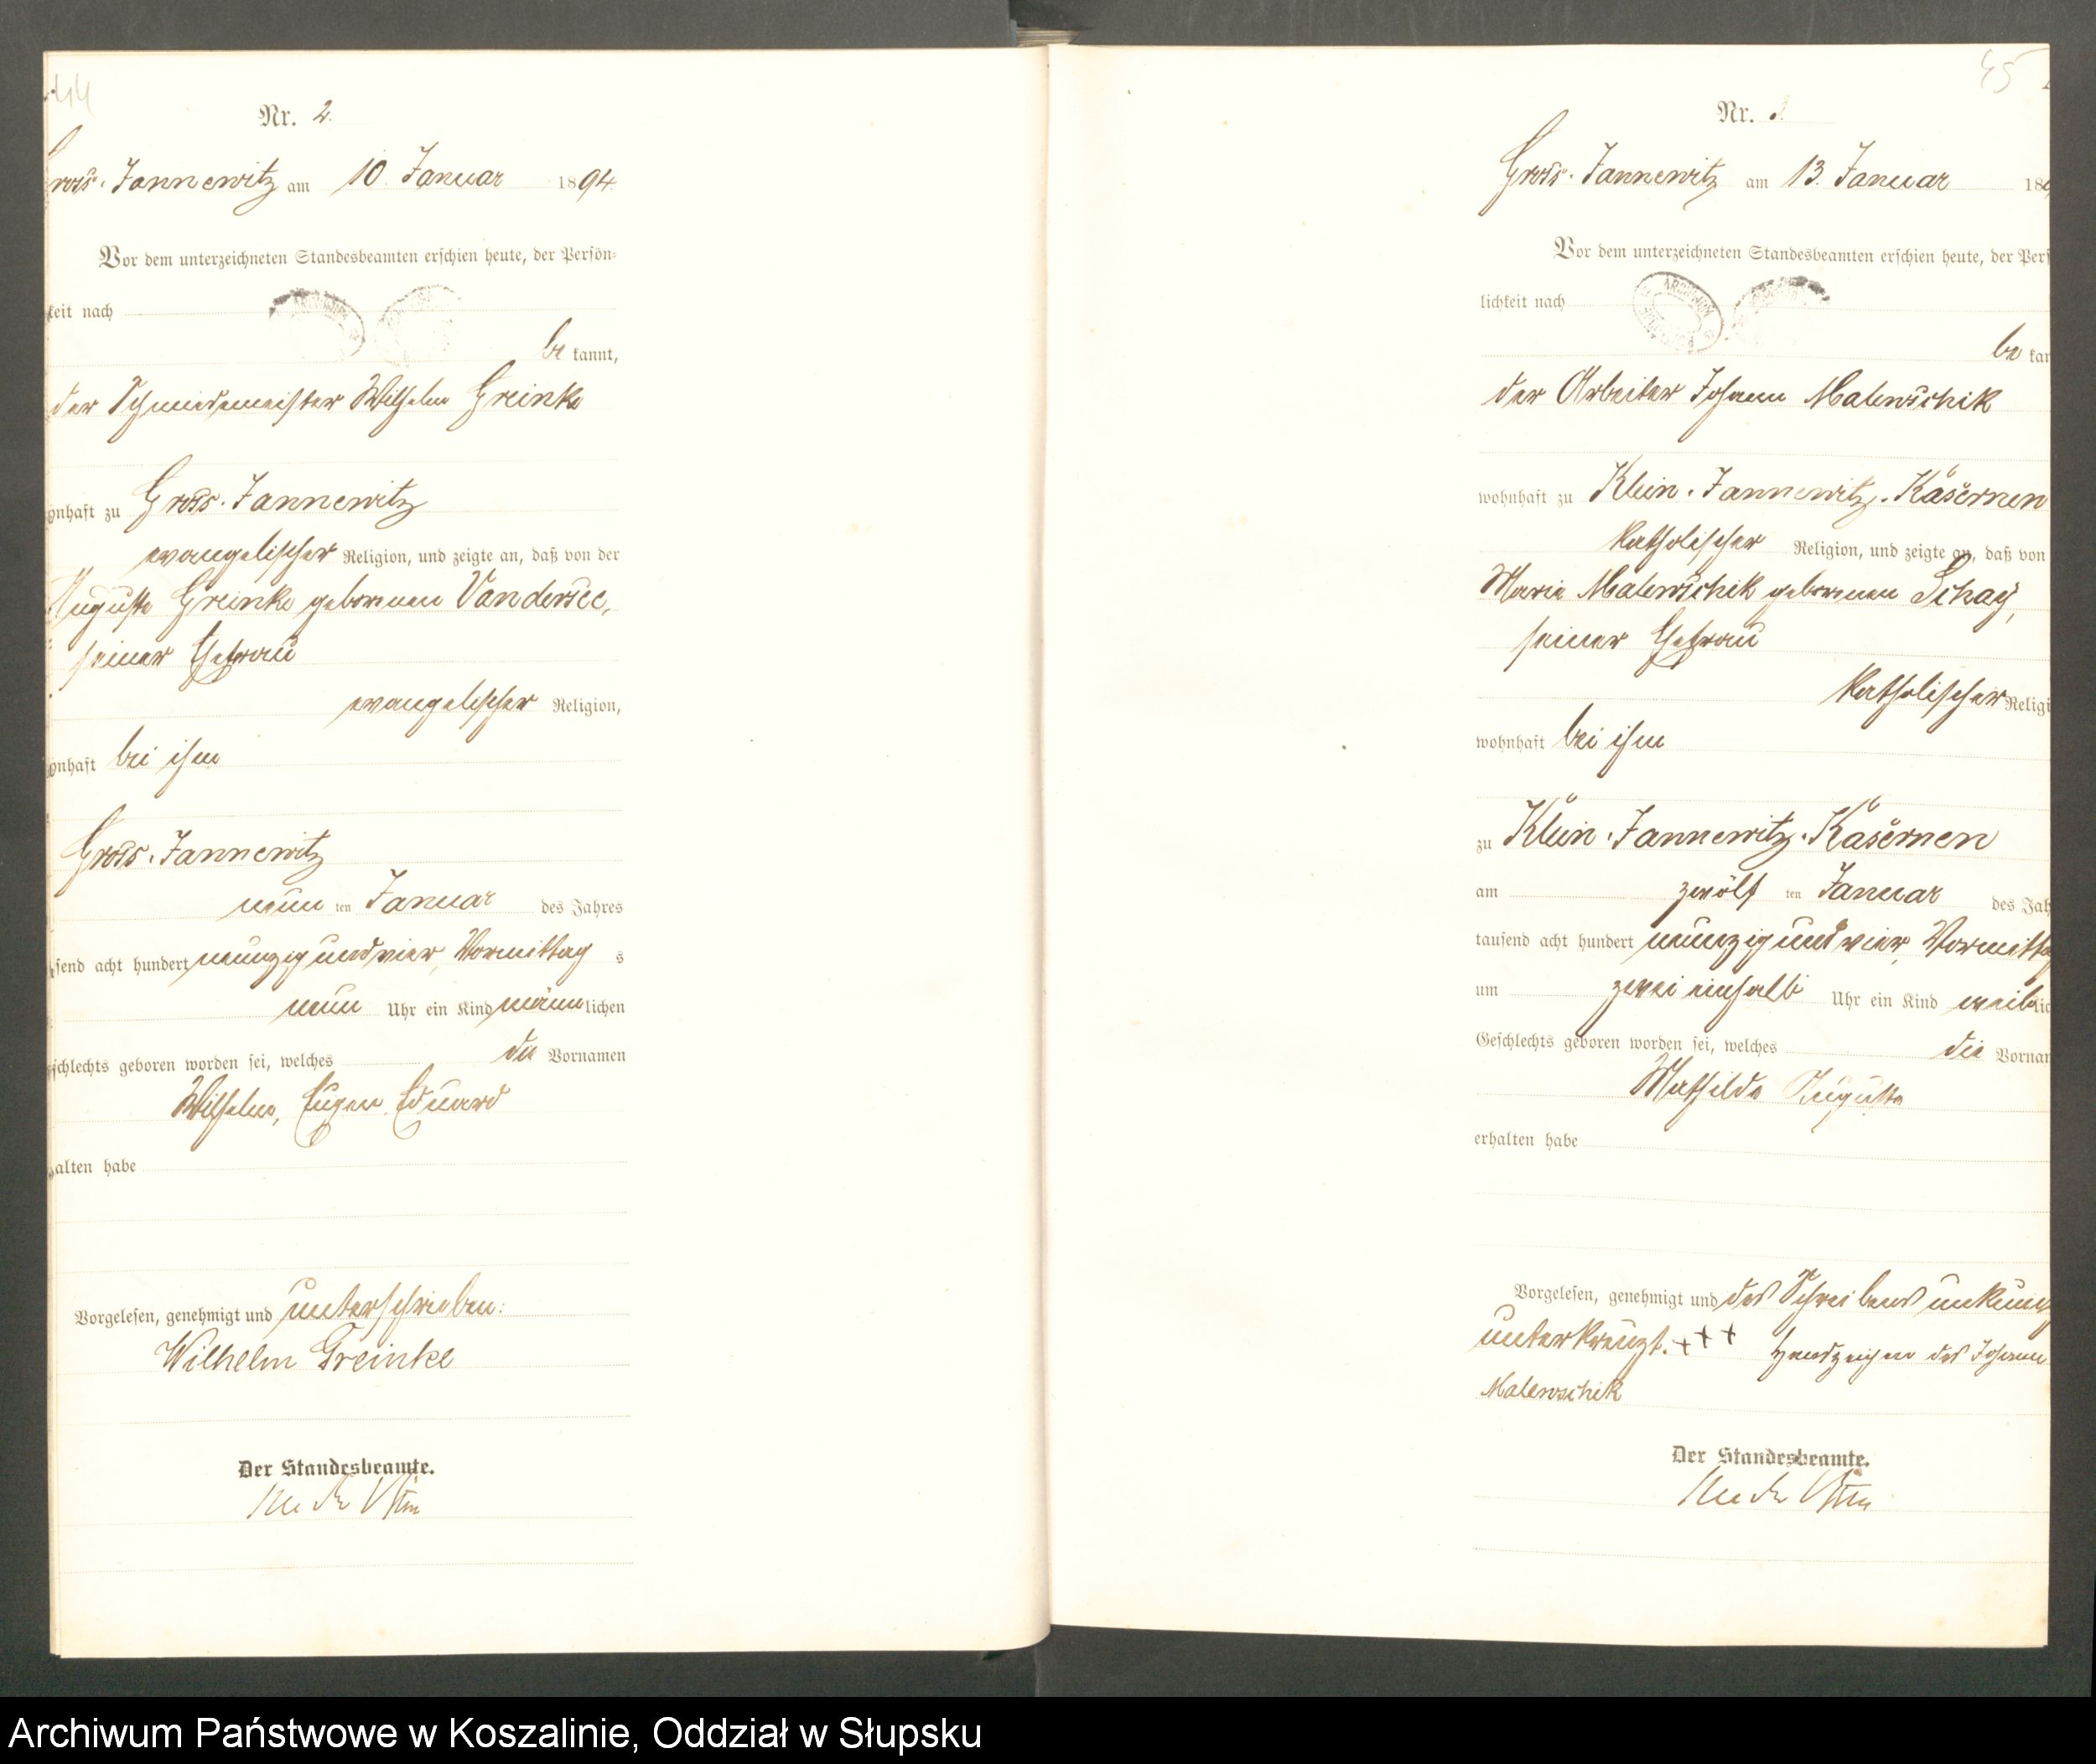 44
Nr. 2.
Gross-Jannewitz am 10. Januar 1894
Vor dem unterzeichneten Standesbeamten erschien heute, der Persön-
keit nach
be kannt,
der Schmiedemeister Wilhelm Greinke
ohnhaft zu Gross-Jannewitz
evangelischer Religion, und zeigte an, daß von der
Auguste Greinke geborenen Vandersee,
seiner Ehefrau
evangelischer Religion,
ohnhaft bei ihm
Gross-Jannewitz
neun ten Januar des Jahres
send acht hundert neunzig und vier, Vormittag s
neun Uhr ein Kind männlichen
schlechts geboren worden sei, welches die Vornamen
Wilhelm, Eugen, Eduard
alten habe
Vorgelesen, genehmigt und unterschrieben:
Wilhelm Greinke
Der Standesbeamte.
45
Nr. 3.
Gross-Jannewitz am 13. Januar 189
Vor dem unterzeichneten Standesbeamten erschien heute, der Pers
lichkeit nach
be kan
der Arbeiter Johann Malenschik
wohnhaft zu Klein-Jannewitz-Käsernen
katholischer Religion, und zeigte an, daß von
Marie Malenschik geborenen Schag,
seiner Ehefrau
katholischer Religi
wohnhaft bei ihm
zu Klein-Jannewitz-Kasernen
am zwölf ten Januar des Jah
tausend acht hundert neunzig und vier, Vormitta
um zwei einhalb Uhr ein Kind weiblic
Geschlechts geboren worden sei, welches die Vornam
Mathilde Auguste
erhalten habe
Vorgelesen, genehmigt und des Schreibens unkundig
unterkreuzt. +++ Handzeichen des Johann
Malenschik
Der Standesbeamte.
Archiwum Państwowe w Koszalinie, Oddział w Słupsku